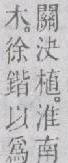 關決植。淮南
木。徐鍇以爲